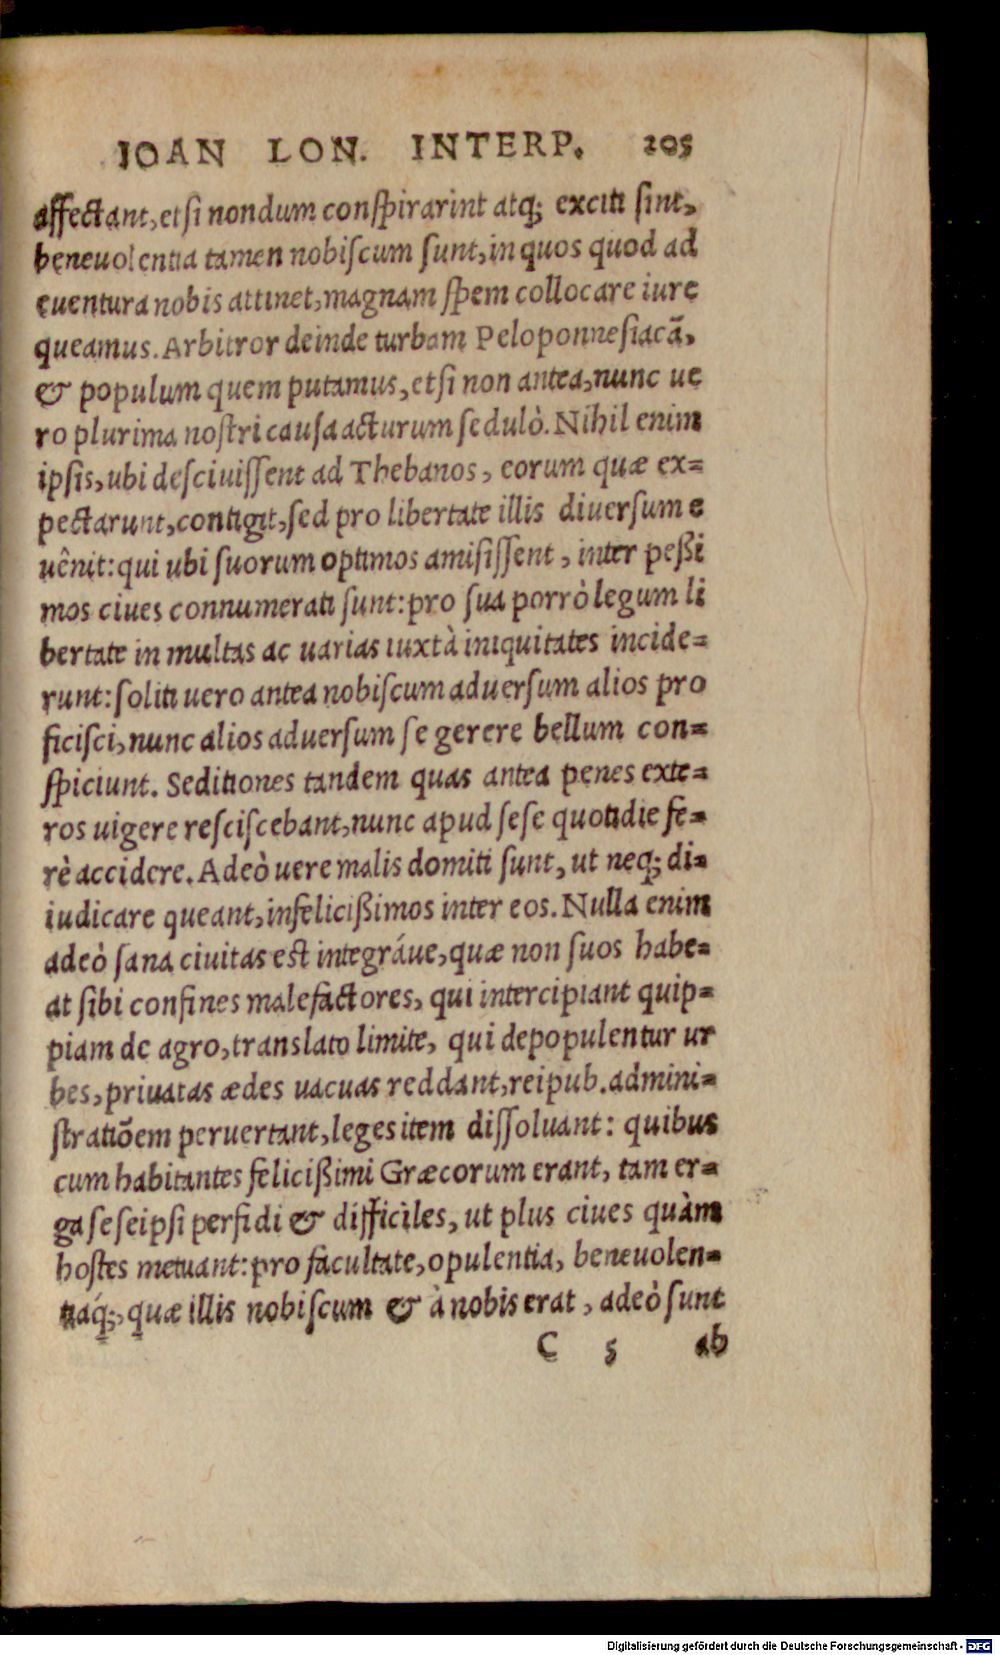 IOAN LON. INTERP. 205
affectant, etsi nondum conspirarint atq; exciti sint,
beneuolentia tamen nobiscum sunt, in quos quod ad
euentura nobis attinet, magnam spem collocare iure
queamus. Arbitror deinde turbam Peloponnesiacã,
& populum quem putamus, etsi non antea, nunc ue
ro plurima nostri causa acturum sedulò. Nihil enim
ipsis, ubi desciuissent ad Thebanos, eorum quæ ex=
pectarunt, contigit, sed pro libertate illis diuersum e
uênit: qui ubi suorum optimos amisissent, inter peßi
mos ciues connumerati sunt: pro sua porrò legum li
bertate in multas ac uarias iuxtà iniquitates incide=
runt: soliti uero antea nobiscum aduersum alios pro
ficisci, nunc alios aduersum se gerere bellum con=
spiciunt. Seditiones tandem quas antea penes exte=
ros uigere resciscebant, nunc apud sese quotidie fe=
rè accidere. Adeò uere malis domiti sunt, ut neq; di=
iudicare queant, infelicißimos inter eos. Nulla enim
adeò sana ciuitas est integráue, quæ non suos habe=
at sibi confines malefactores, qui intercipiant quip=
piam de agro, translato limite, qui depopulentur ur
bes, priuatas ædes uacuas reddant, reipub. admini=
stratiõem peruertant, leges item dissoluant: quibus
cum habitantes felicißimi Græcorum erant, tam er=
ga seseipsi perfidi & difficiles, ut plus ciues quàm
hostes metuant: pro facultate, opulentia, beneuolen=
tiaq́;, quæ illis nobiscum & à nobis erat, adeò sunt
C 5 ab
Digitalisierung gefördert durch die Deutsche Forschungsgemeinschaft - DFG